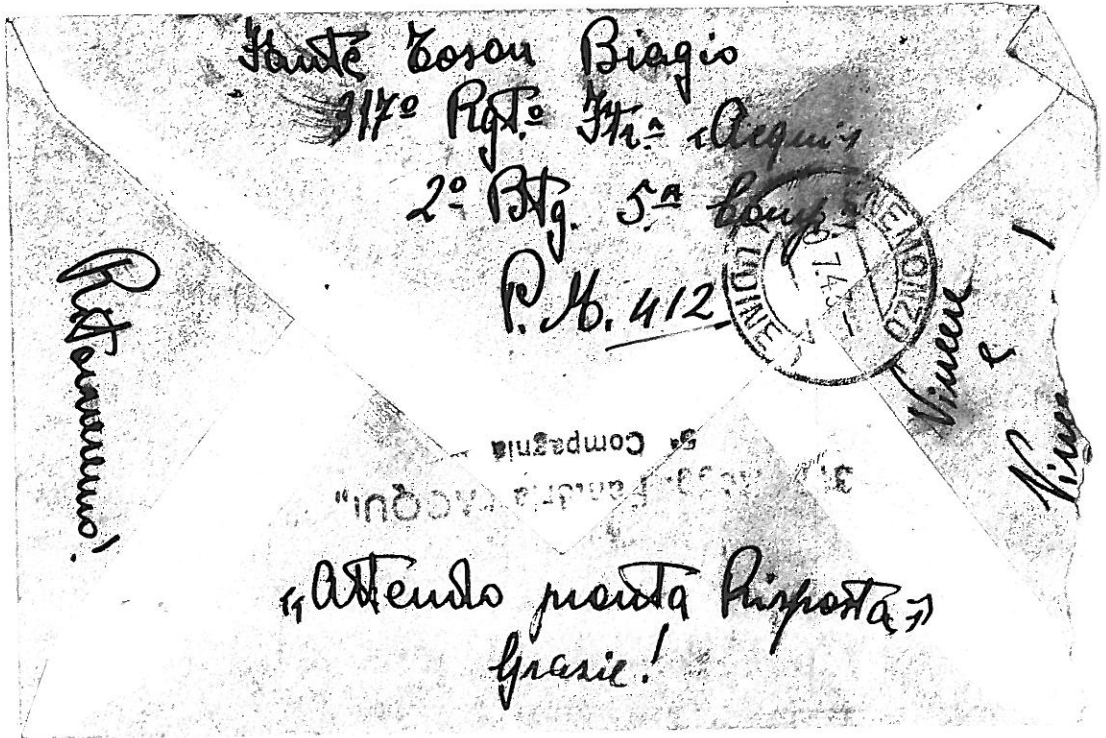 Fante Toson Biagio
317º Rgt.º Ftr.ª "Acqui"
2º Btg. 5ª Comp.
P. M. 412
ENEMONZO
(UDINE)
7.43
Ritorneremo!
Vincere
e
Vince
5ª Compagnia
Fanteria "ACQUI"
"Attendo pronta Risposta"
Grazie!